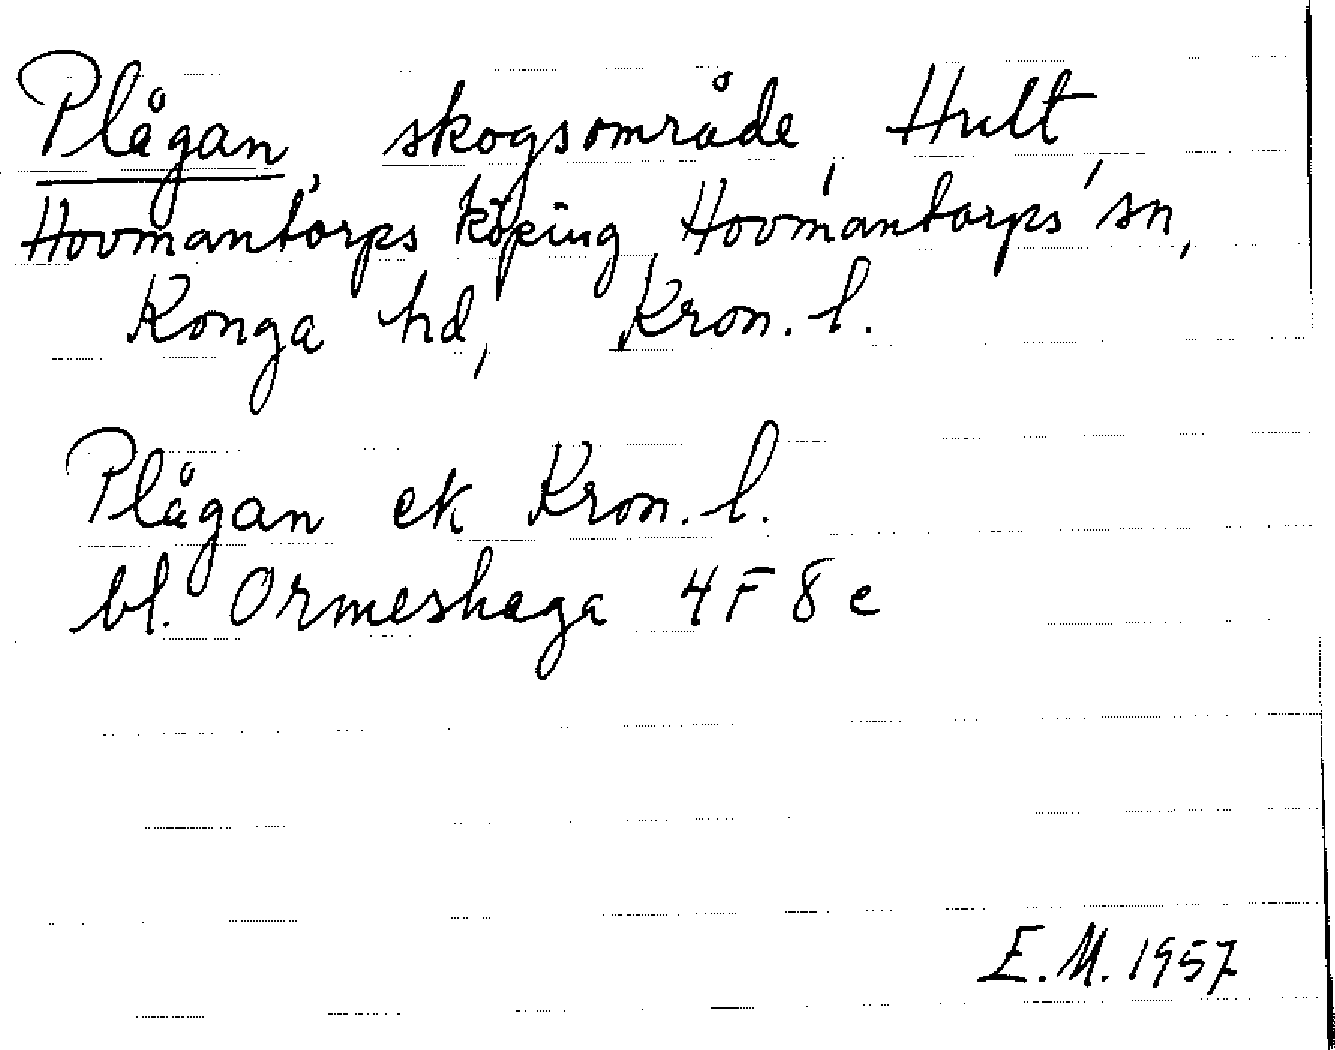 Plågan, skogsområde, Hult,
Hovmantorps köping, Hovmantorps sn,
Konga hd, Kron. l.
Plågan ek Kron. l.
bl. Ormeshaga 4F 8e
E.M. 1957